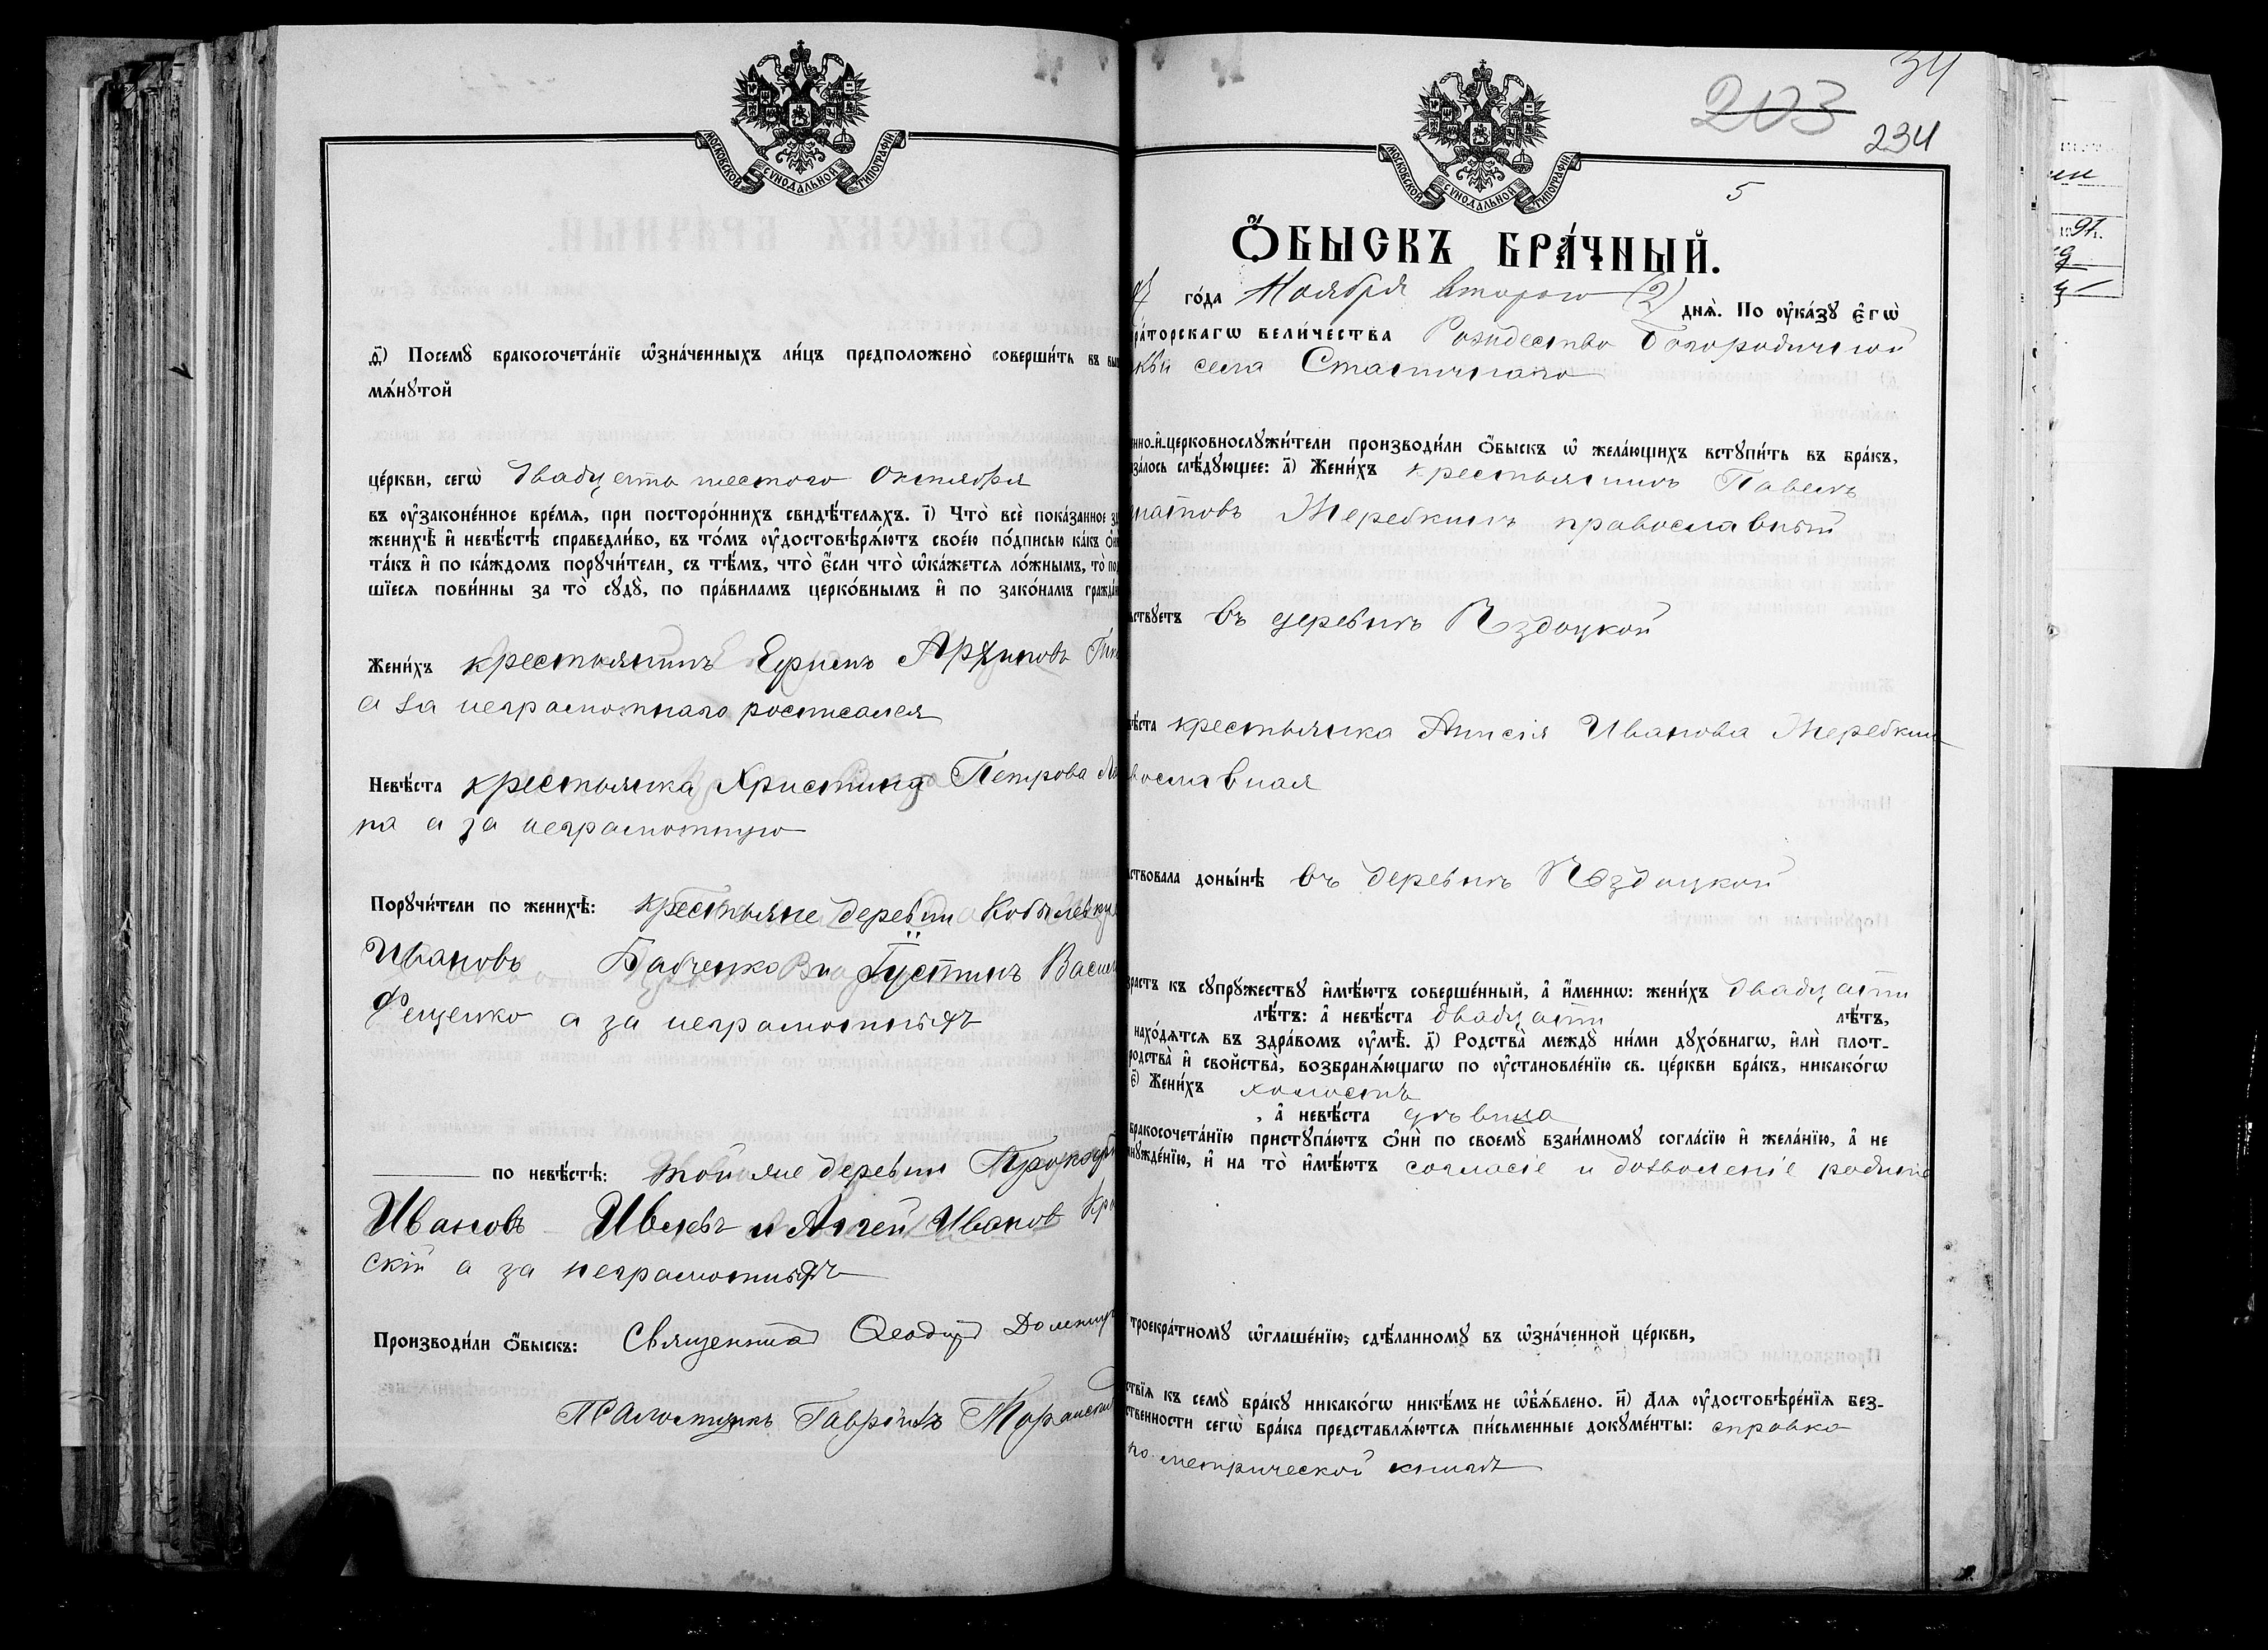 МОСКОВСКОЙ СѴНОДАЛЬНОЙ ТИПОГРАФІИ
ѳ҃) Посемꙋ̀ бракосочета́нїе ѡ҆зна́ченныхъ ли́цъ предположено̀ соверши́ть въ вы
мѧ́нꙋтой
це́ркви, сегѡ̀ двадцать шестого Октября
въ ᲂу҆законе́нное вре́мѧ, при посторо́ннихъ свидѣ́телѧхъ. і҃) Что̀ всѐ пока́занное
женихѣ̀ и҆ невѣ́стѣ справедли́во, въ то́мъ ᲂу҆достовѣрѧ́ютъ свое́ю по́дписью ка́къ
та́къ и҆ по ка́ждомъ порꙋчи́тели, съ тѣ́мъ, что̀ є҆́сли что̀ ѡ҆ка́жетсѧ ло́жнымъ, то̀
шїесѧ пови́нны за то̀ сꙋдꙋ̀, по пра́виламъ церко́внымъ и҆ по зако́намъ гражда́н
Жени́хъ крестьянинъ Ефимъ
а за неграмотнаго росписался
Невѣ́ста крестьянка Христина Петрова
на а за неграмотную
Порꙋчи́тели по женихѣ̀: крестьяне деревни
Ивановъ Бабченко и Густинъ Васил
Фещенко а за неграмотныхъ
по невѣ́стѣ: той же деревни Прокофі
Ивановъ Ивлевъ и Иванов
скій а за неграмотныхъ
Производи́ли ѻ҆́быскъ: Священникъ
Псаломщикъ Гавріилъ
34
203
234
МОСКОВСКОЙ СѴНОДАЛЬНОЙ ТИПОГРАФІИ
5
Ѻ҆́БЫСКЪ БРА́ЧНЫЙ.
го́да Ноября второго (2) днѧ̀. По ᲂу҆ка́зꙋ є҆гѡ̀
ра́торскагѡ вели́чества Рождество Богородичной
кви села
нно-и҆-церковнослꙋжи́тели производи́ли ѻ҆́быскъ ѡ҆ жела́ющихъ встꙋпи́ть въ бра́къ,
за́лось слѣ́дꙋющее: а҃) Жени́хъ крестьянинъ Павелъ
Жеребкинъ православный
ствꙋетъ въ деревнѣ
вѣ́ста крестьянка Анисія Иванова Жеребкин
вославная
ствовала доны́нѣ въ деревнѣ
зрастъ къ сꙋпрꙋжествꙋ и҆мѣ́ютъ соверше́нный, а҆ и҆́меннѡ: жени́хъ двадцати
лѣ́тъ: а҆ невѣ́ста двадцати лѣ́тъ,
нахо́дѧтсѧ въ здра́вомъ ᲂу҆мѣ̀. д҃) Родства̀ междꙋ̀ ни́ми дꙋхо́внагѡ, и҆лѝ плот-
родства̀ и҆ свойства̀, возбранѧ́ющагѡ по ᲂу҆становле́нїю св. це́ркви бра́къ, никако́гѡ
є҃) Жени́хъ холостъ
, а҆ невѣ́ста дѣвица
бракосочета́нїю пристꙋпа́ютъ ѻ҆нѝ по своемꙋ̀ взаи́мномꙋ согла́сїю и҆ жела́нїю, а҆ не
нꙋжде́нїю, и҆ на то̀ и҆мѣ́ютъ согласіе и дозволеніе родите
троекра́тномꙋ ѡ҆глаше́нїю, сдѣ́ланномꙋ въ ѡ҆зна́ченной це́ркви,
ствїѧ къ семꙋ̀ бра́кꙋ никако́гѡ никѣ́мъ не ѡ҆б̾ѧ́влено. и҃) Длѧ ᲂу҆достовѣре́нїѧ без-
ственности сегѡ̀ бра́ка представлѧ́ютсѧ пи́сьменные докꙋме́нты: справка
по метрической книгѣ